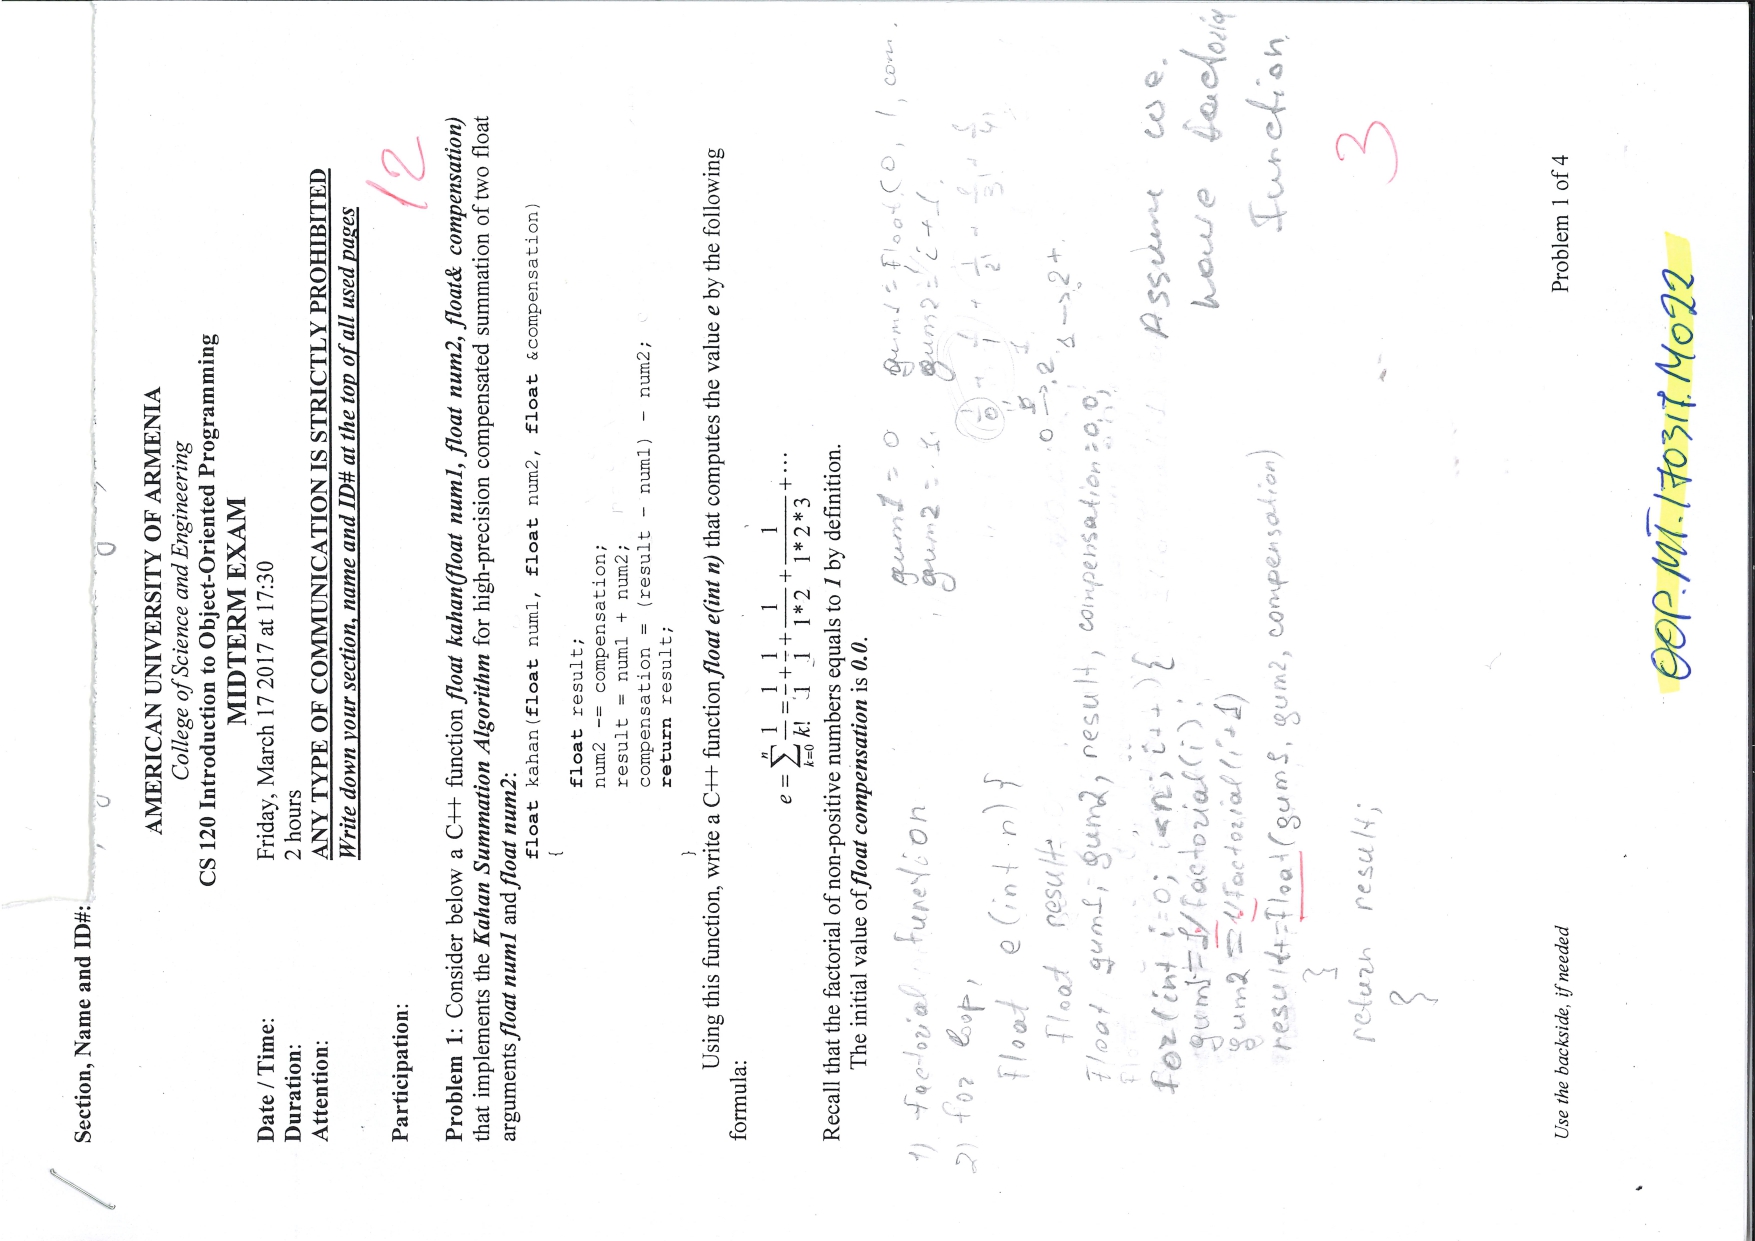 Section, Name and ID#:
AMERICAN UNIVERSITY OF ARMENIA
College of Science and Engineering
CS 120 Introduction to Object-Oriented Programming
MIDTERM EXAM
Date / Time: Friday, March 17 2017 at 17:30
Duration: 2 hours
Attention: ANY TYPE OF COMMUNICATION IS STRICTLY PROHIBITED
Write down your section, name and ID# at the top of all used pages
12
Participation:
Problem 1: Consider below a C++ function float kahan(float num1, float num2, float& compensation)
that implements the Kahan Summation Algorithm for high-precision compensated summation of two float
arguments float num1 and float num2:
float kahan(float num1, float num2, float &compensation)
{
float result;
num2 -= compensation;
result = num1 + num2;
compensation = (result - num1) - num2;
return result;
}
Using this function, write a C++ function float e(int n) that computes the value e by the following
formula:
e = ∑ⁿₖ₌₀ 1/k! = 1/1 + 1/1 + 1/(1*2) + 1/(1*2*3) + ⋯
Recall that the factorial of non-positive numbers equals to 1 by definition.
The initial value of float compensation is 0.0.
gum1 = 0 gum1 = float(0, 1, com.
1) factorial function
gum2 = 1. gum2 = i + 1.
2) for loop,
1/0 + 1/1 + 1/2! + 1/3! + 1/4!
float e(int n){
0 -> 2
float result
1 -> 2+
float gum1, gum2, result, compensation=0,0,
for(int i=0; i<n; i++){
Assume we
gum1=1/factorial(i);
have factorial
gum2=1/factorial(i+1)
result+=float(gum1, gum2, compensation)
function
}
return result;
3
}
Use the backside, if needed Problem 1 of 4
OOP.MT.170317.M022